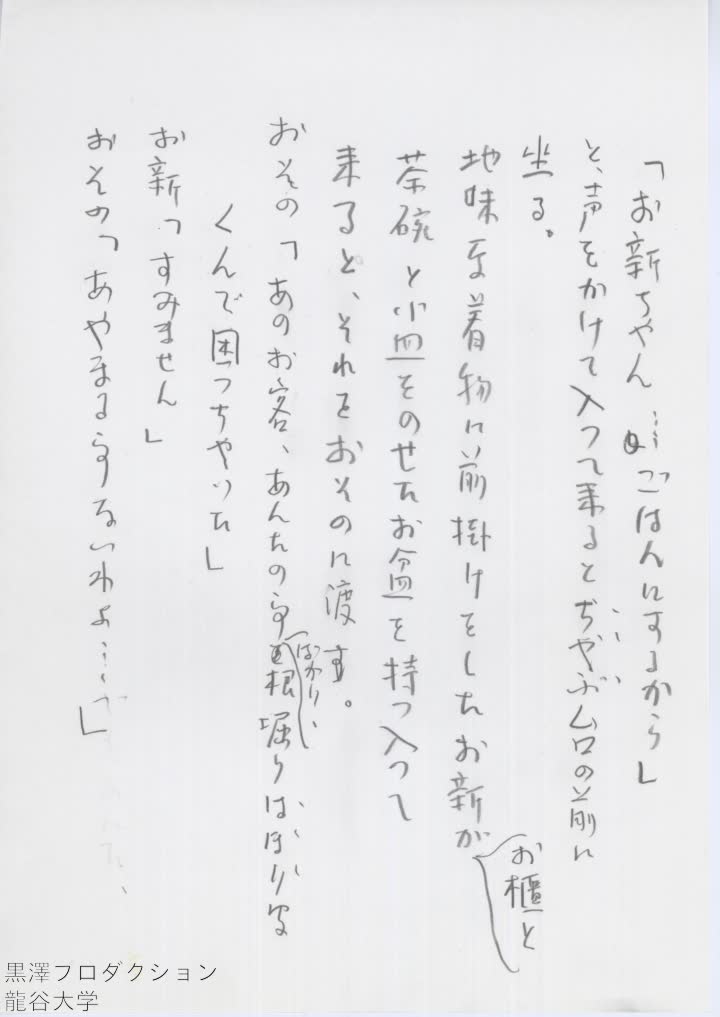 「お新ちやん……ごはんにするから」
と、声をかけて入つて来るとぢやぶ台の前に
坐る。
地味な着物に前掛けをしたお新が
お櫃と
茶碗と小皿をのせたお盆を持つ入つて
来ると、それをおそのに渡す。
おその「あのお客、あんたの事
ばかり、
根堀りはほりき
くんで困つちやつた」
お新「すみません」
おその「あやまる事ないわよ……」
黒澤プロダクション
龍谷大学